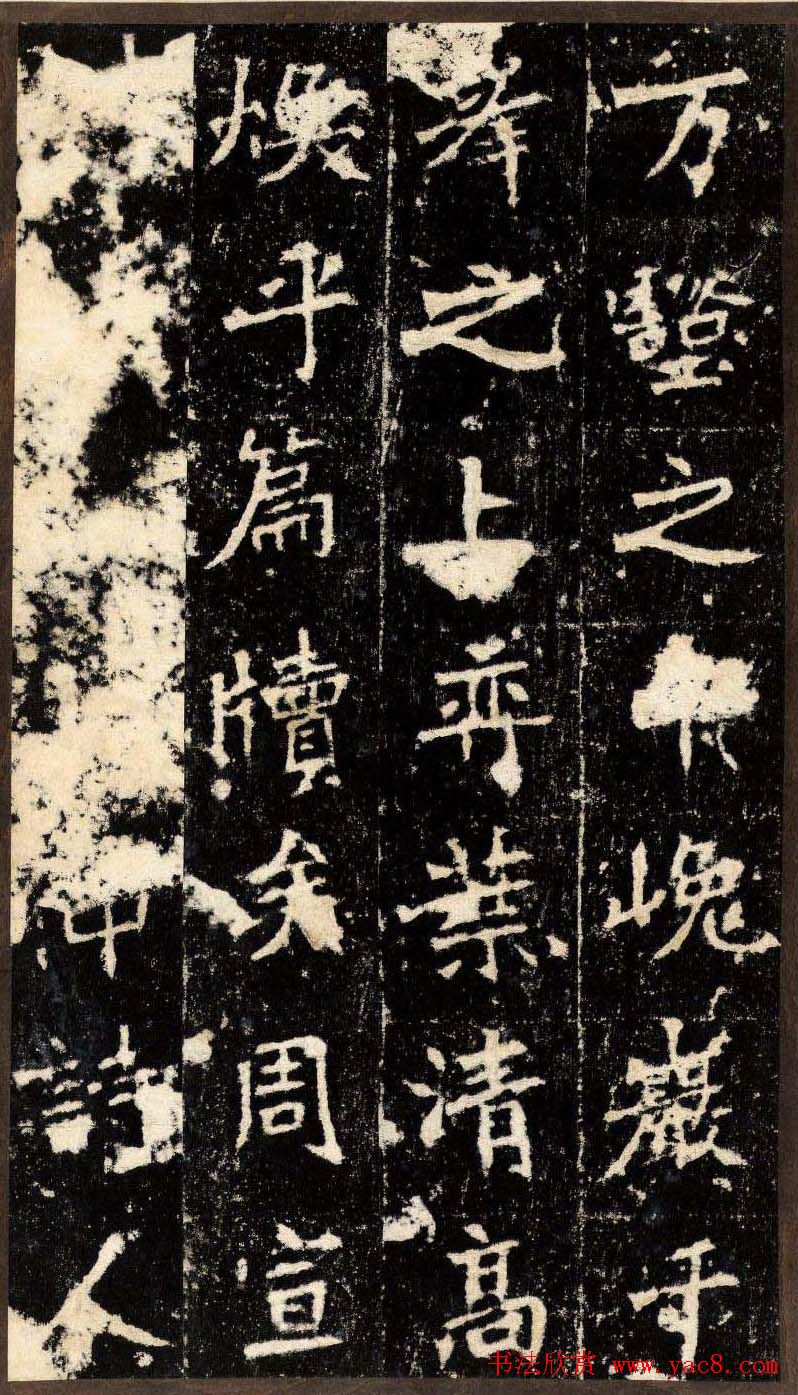 万壑之下峗巖乎
峯之上弈葉清高
焕乎篇牘矣周宣
中詩人
书法欣赏 www.yac8.com